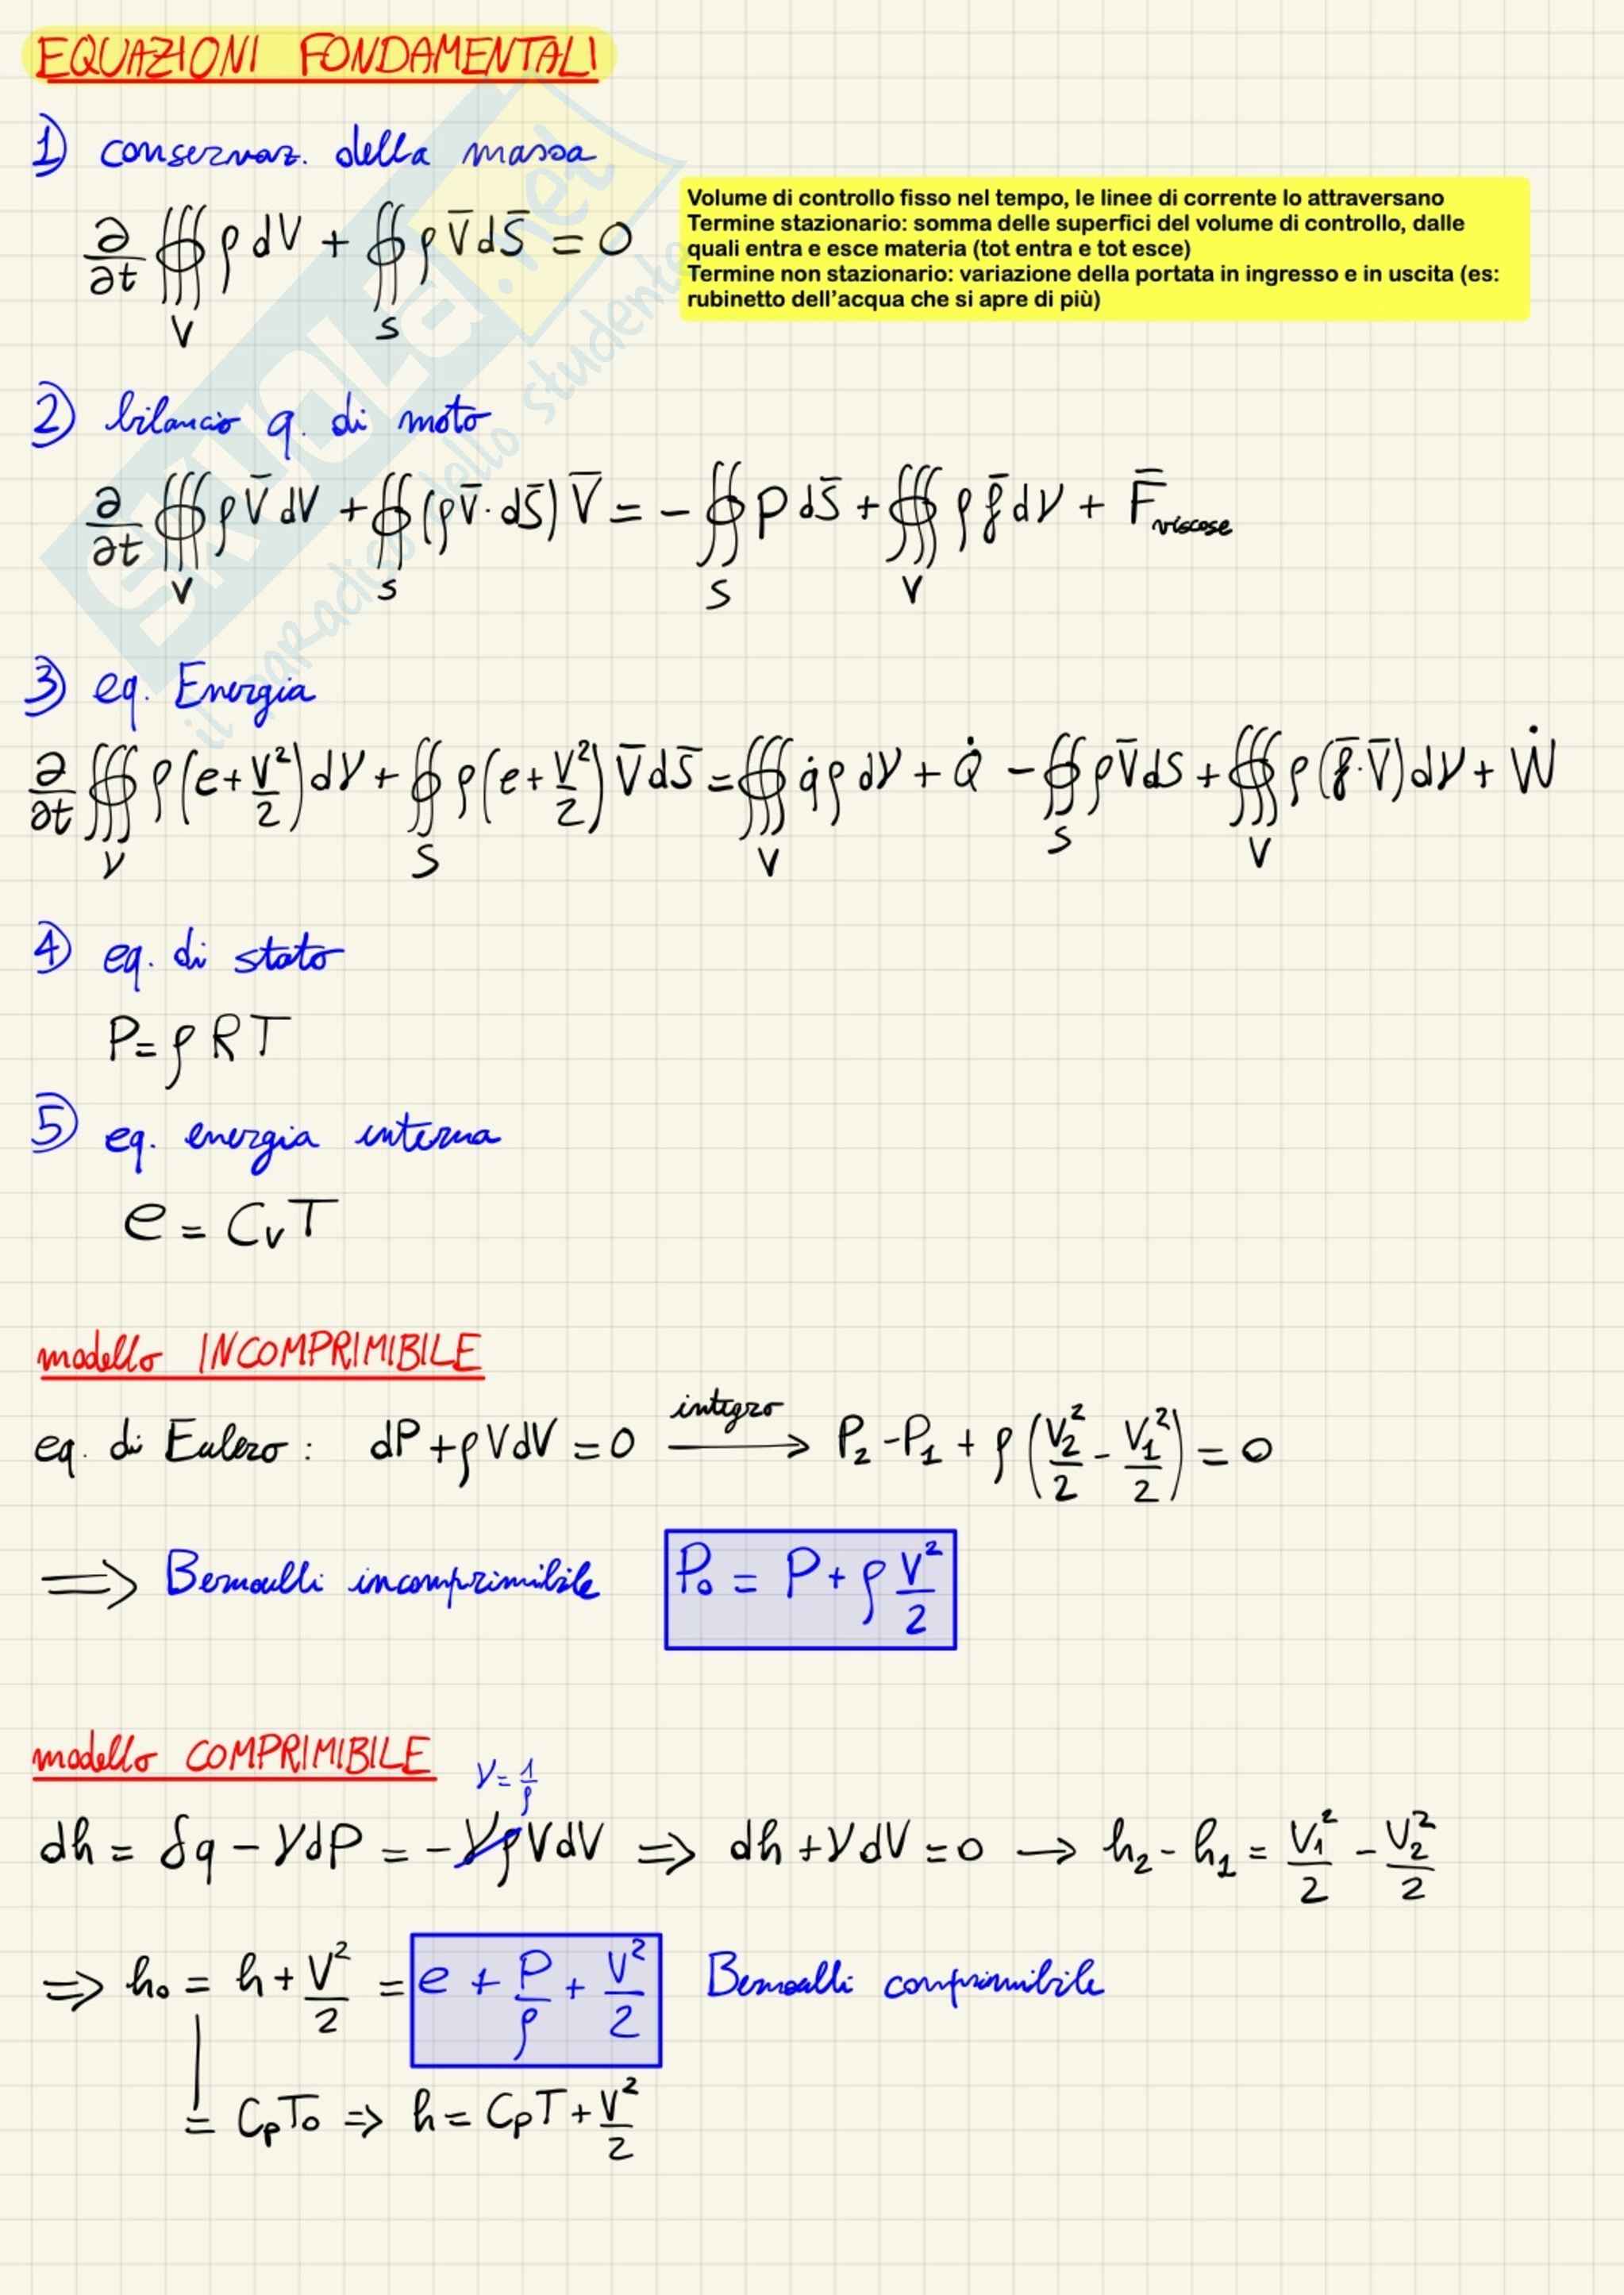 EQUAZIONI FONDAMENTALI
1) conservaz. della massa
∂/∂t ∰_V ρ dV + ∯_S ρ V̄ dS̄ = 0
Volume di controllo fisso nel tempo, le linee di corrente lo attraversano
Termine stazionario: somma delle superfici del volume di controllo, dalle
quali entra e esce materia (tot entra e tot esce)
Termine non stazionario: variazione della portata in ingresso e in uscita (es:
rubinetto dell'acqua che si apre di più)
2) bilancio q. di moto
∂/∂t ∰_V ρ V̄ dV + ∯_S (ρ V̄ · dS̄) V̄ = - ∯_S P dS̄ + ∰_V ρ f̄ dV + F̄ viscose
3) eq. Energia
∂/∂t ∰_V ρ (e + V²/2) dV + ∯_S ρ (e + V²/2) V̄ dS̄ = ∰_V q̇ ρ dV + Q̇ - ∯_S ρ V̄ dS + ∰_V ρ (f̄ · V̄) dV + Ẇ
4) eq. di stato
P = ρ R T
5) eq. energia interna
e = Cv T
modello INCOMPRIMIBILE
eq. di Eulero : dP + ρ V dV = 0 integro → P₂ - P₁ + ρ (V₂²/2 - V₁²/2) = 0
⇒ Bernoulli incomprimibile P₀ = P + ρ V²/2
modello COMPRIMIBILE
V = 1/ρ
dh = δq - V dP = - Vρ V dV ⇒ dh + V dV = 0 → h₂ - h₁ = V₁²/2 - V₂²/2
⇒ h₀ = h + V²/2 = e + P/ρ + V²/2 Bernoulli comprimibile
= Cp T₀ ⇒ h = Cp T + V²/2
SKUOLA.net
il paradiso dello studente